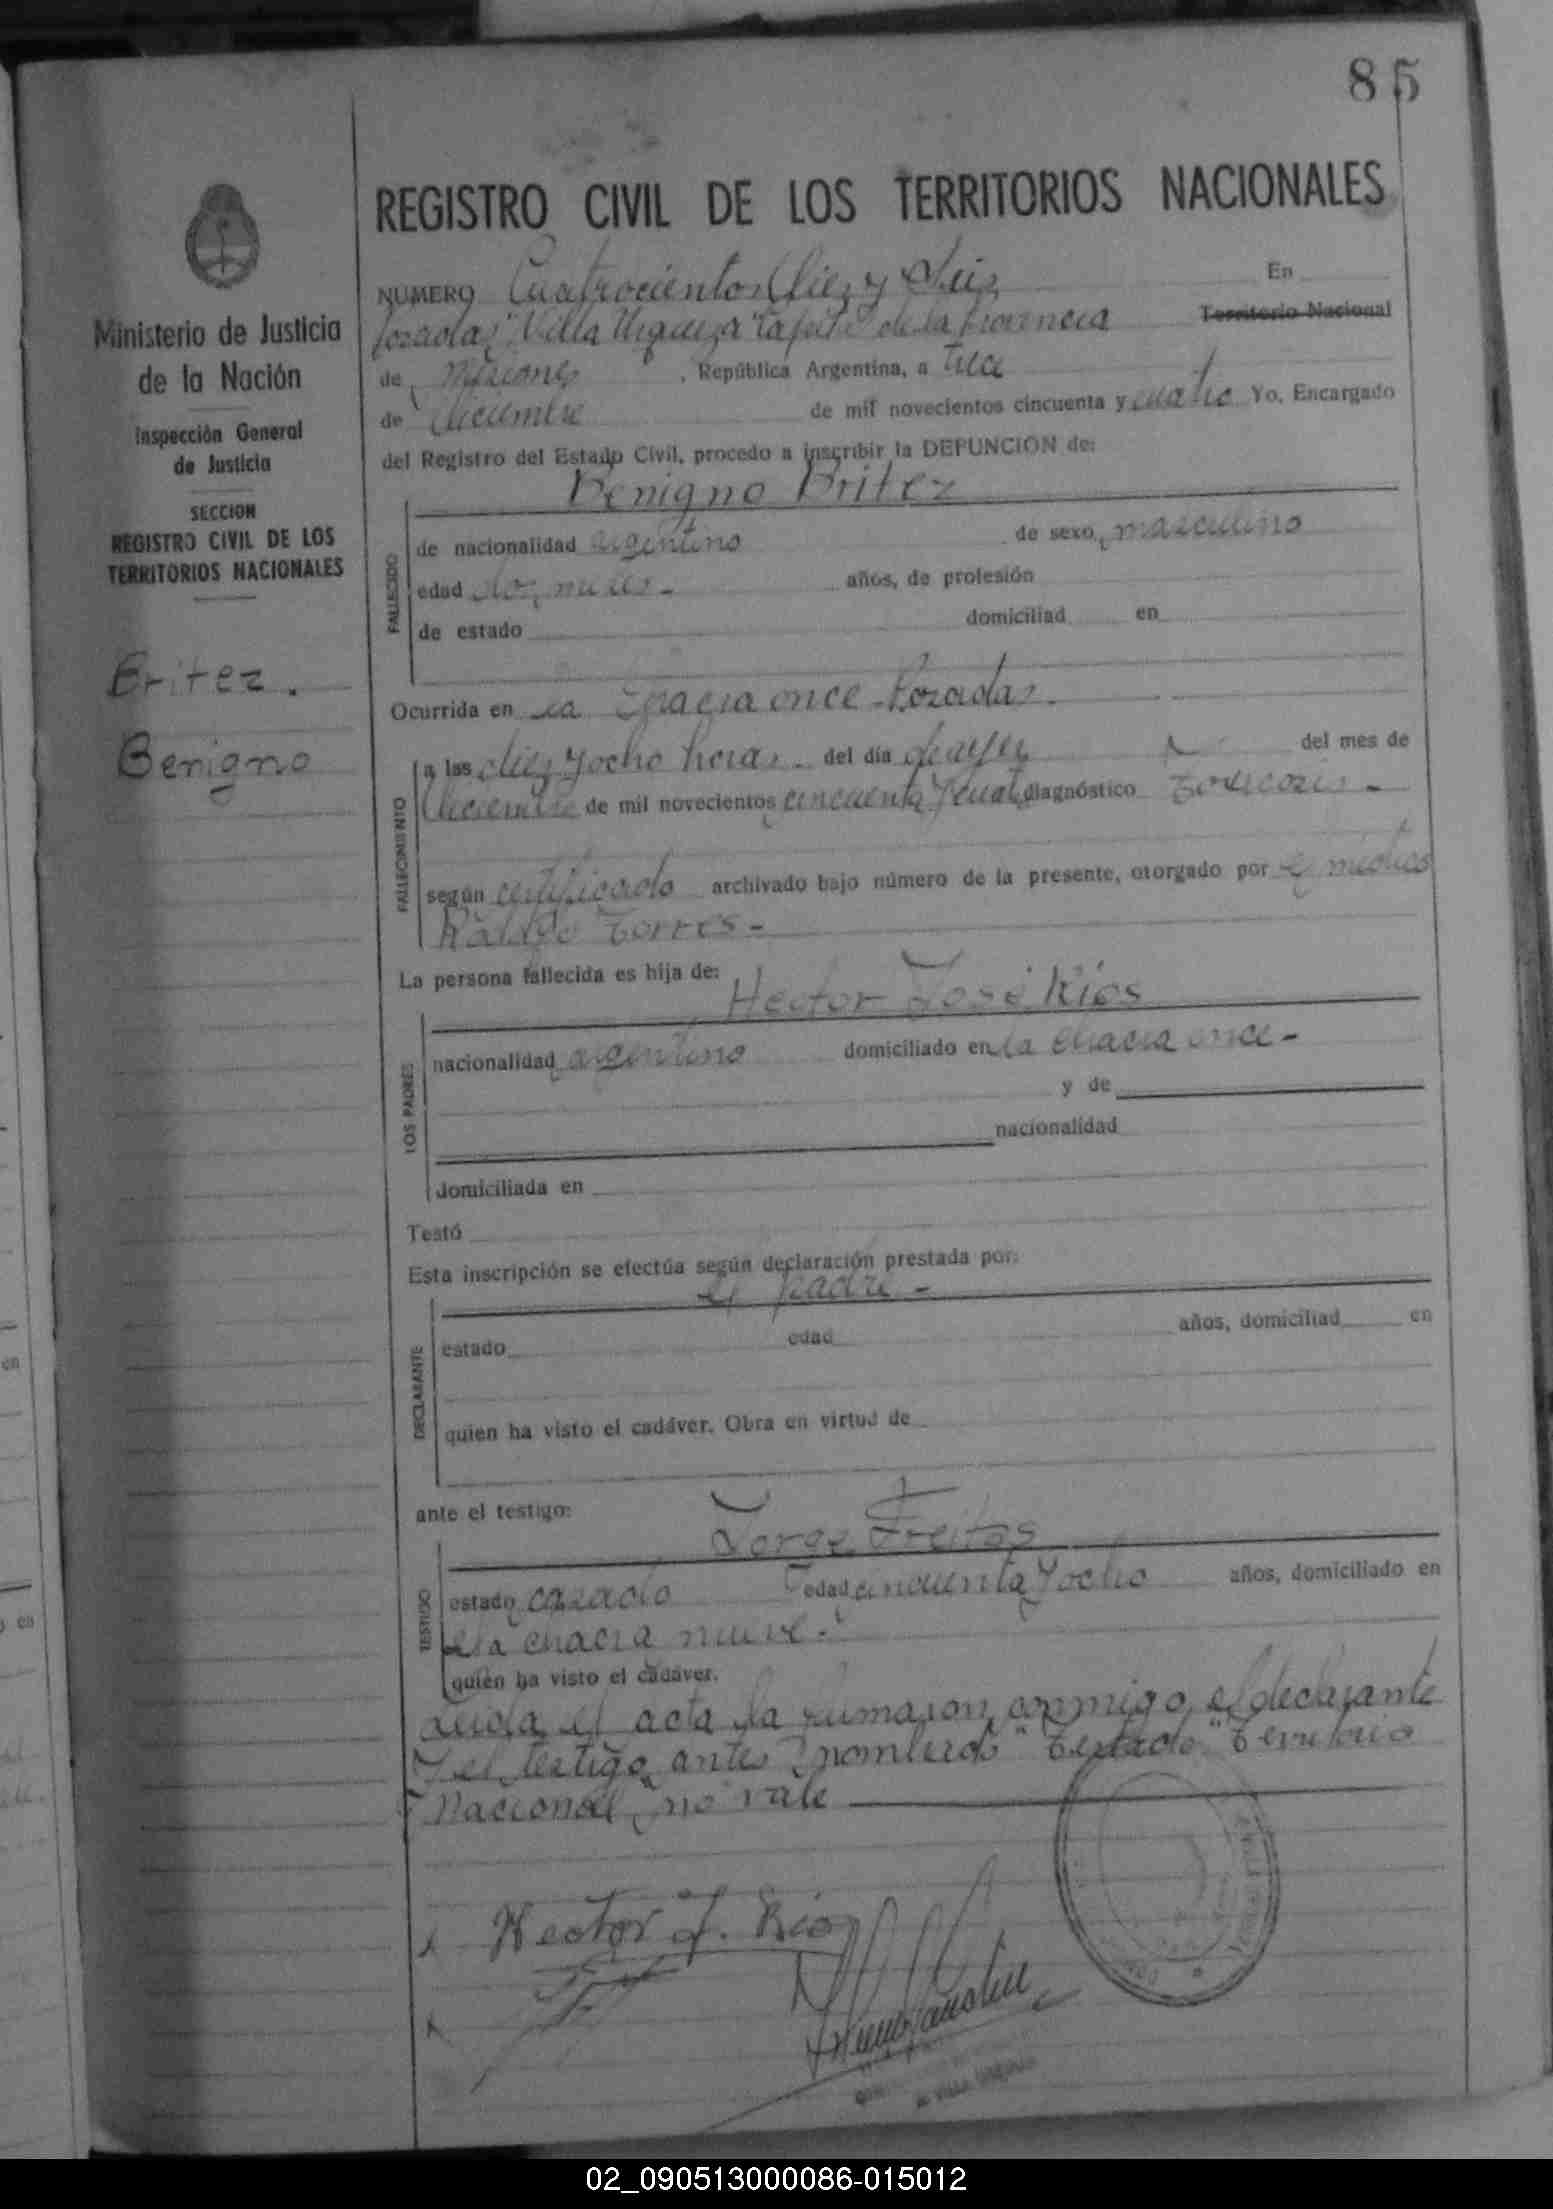 85
REGISTRO CIVIL DE LOS TERRITORIOS NACIONALES
Ministerio de Justicia
de la Nación
Inspección General
de Justicia
SECCION
REGISTRO CIVIL DE LOS
TERRITORIOS NACIONALES
Britez.
Benigno
NUMERO Cuatrocientos diez y seis En
Posadas "Villa Urquiza" Capital de la Provincia Territorio Nacional
de Misiones, República Argentina, a trece
de diciembre de mil novecientos cincuenta y cuatro Yo, Encargado
del Registro del Estado Civil, procedo a inscribir la DEFUNCION de:
Benigno Britez
FALLECIDO
de nacionalidad argentino de sexo masculino
edad dos meses - años, de profesión
de estado domiciliad en
Ocurrida en la chacra once - Posadas.
FALLECIMIENTO
a las diez y ocho horas. del día de ayer del mes de
diciembre de mil novecientos cincuenta y cuatro diagnóstico Toxicosis -
según certificado archivado bajo número de la presente, otorgado por el médico
Torres -
La persona fallecida es hija de:
Hector José Ríos
LOS PADRES
nacionalidad argentino domiciliado en la chacra once -
y de
nacionalidad
domiciliada en
Testó
Esta inscripción se efectúa según declaración prestada por:
el padre -
DECLARANTE
estado edad años, domiciliad en
quien ha visto el cadáver. Obra en virtud de
ante el testigo:
Jorge Freitas
TESTIGO
estado casado edad cincuenta y ocho años, domiciliado en
la chacra nueve.
quien ha visto el cadáver.
Leída el acta la firmaron conmigo, el declarante
y el testigo antes nombrado "Testado" Territorio
Nacional" no vale
Hector J. Rios
02_090513000086-015012